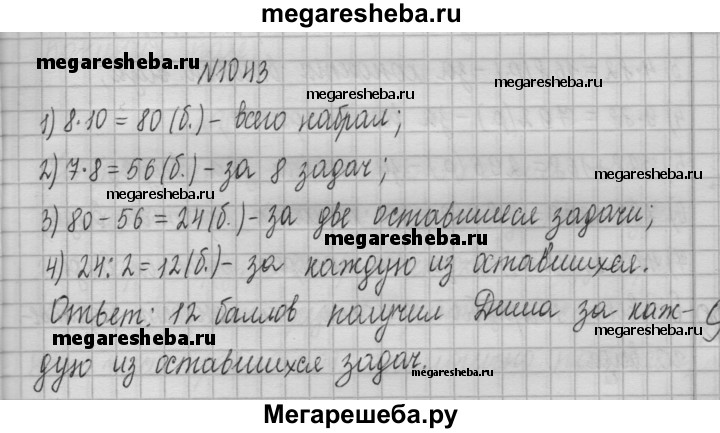 megaresheba.ru
megaresheba.ru
№1043
megaresheba.ru
1) 8·10 = 80 (б.) - всего набрал;
2) 7·8 = 56 (б.) - за 8 задач;
megaresheba.ru
megaresheba.ru
3) 80 - 56 = 24 (б.) - за две оставшиеся задачи;
megaresheba.ru
4) 24 : 2 = 12 (б.) - за каждую из оставшихся.
Ответ: 12 баллов получил Диша за каж-
megaresheba.ru
megaresheba.ru
дую из оставшихся задач.
megaresheba.ru
Мегарешеба.ру